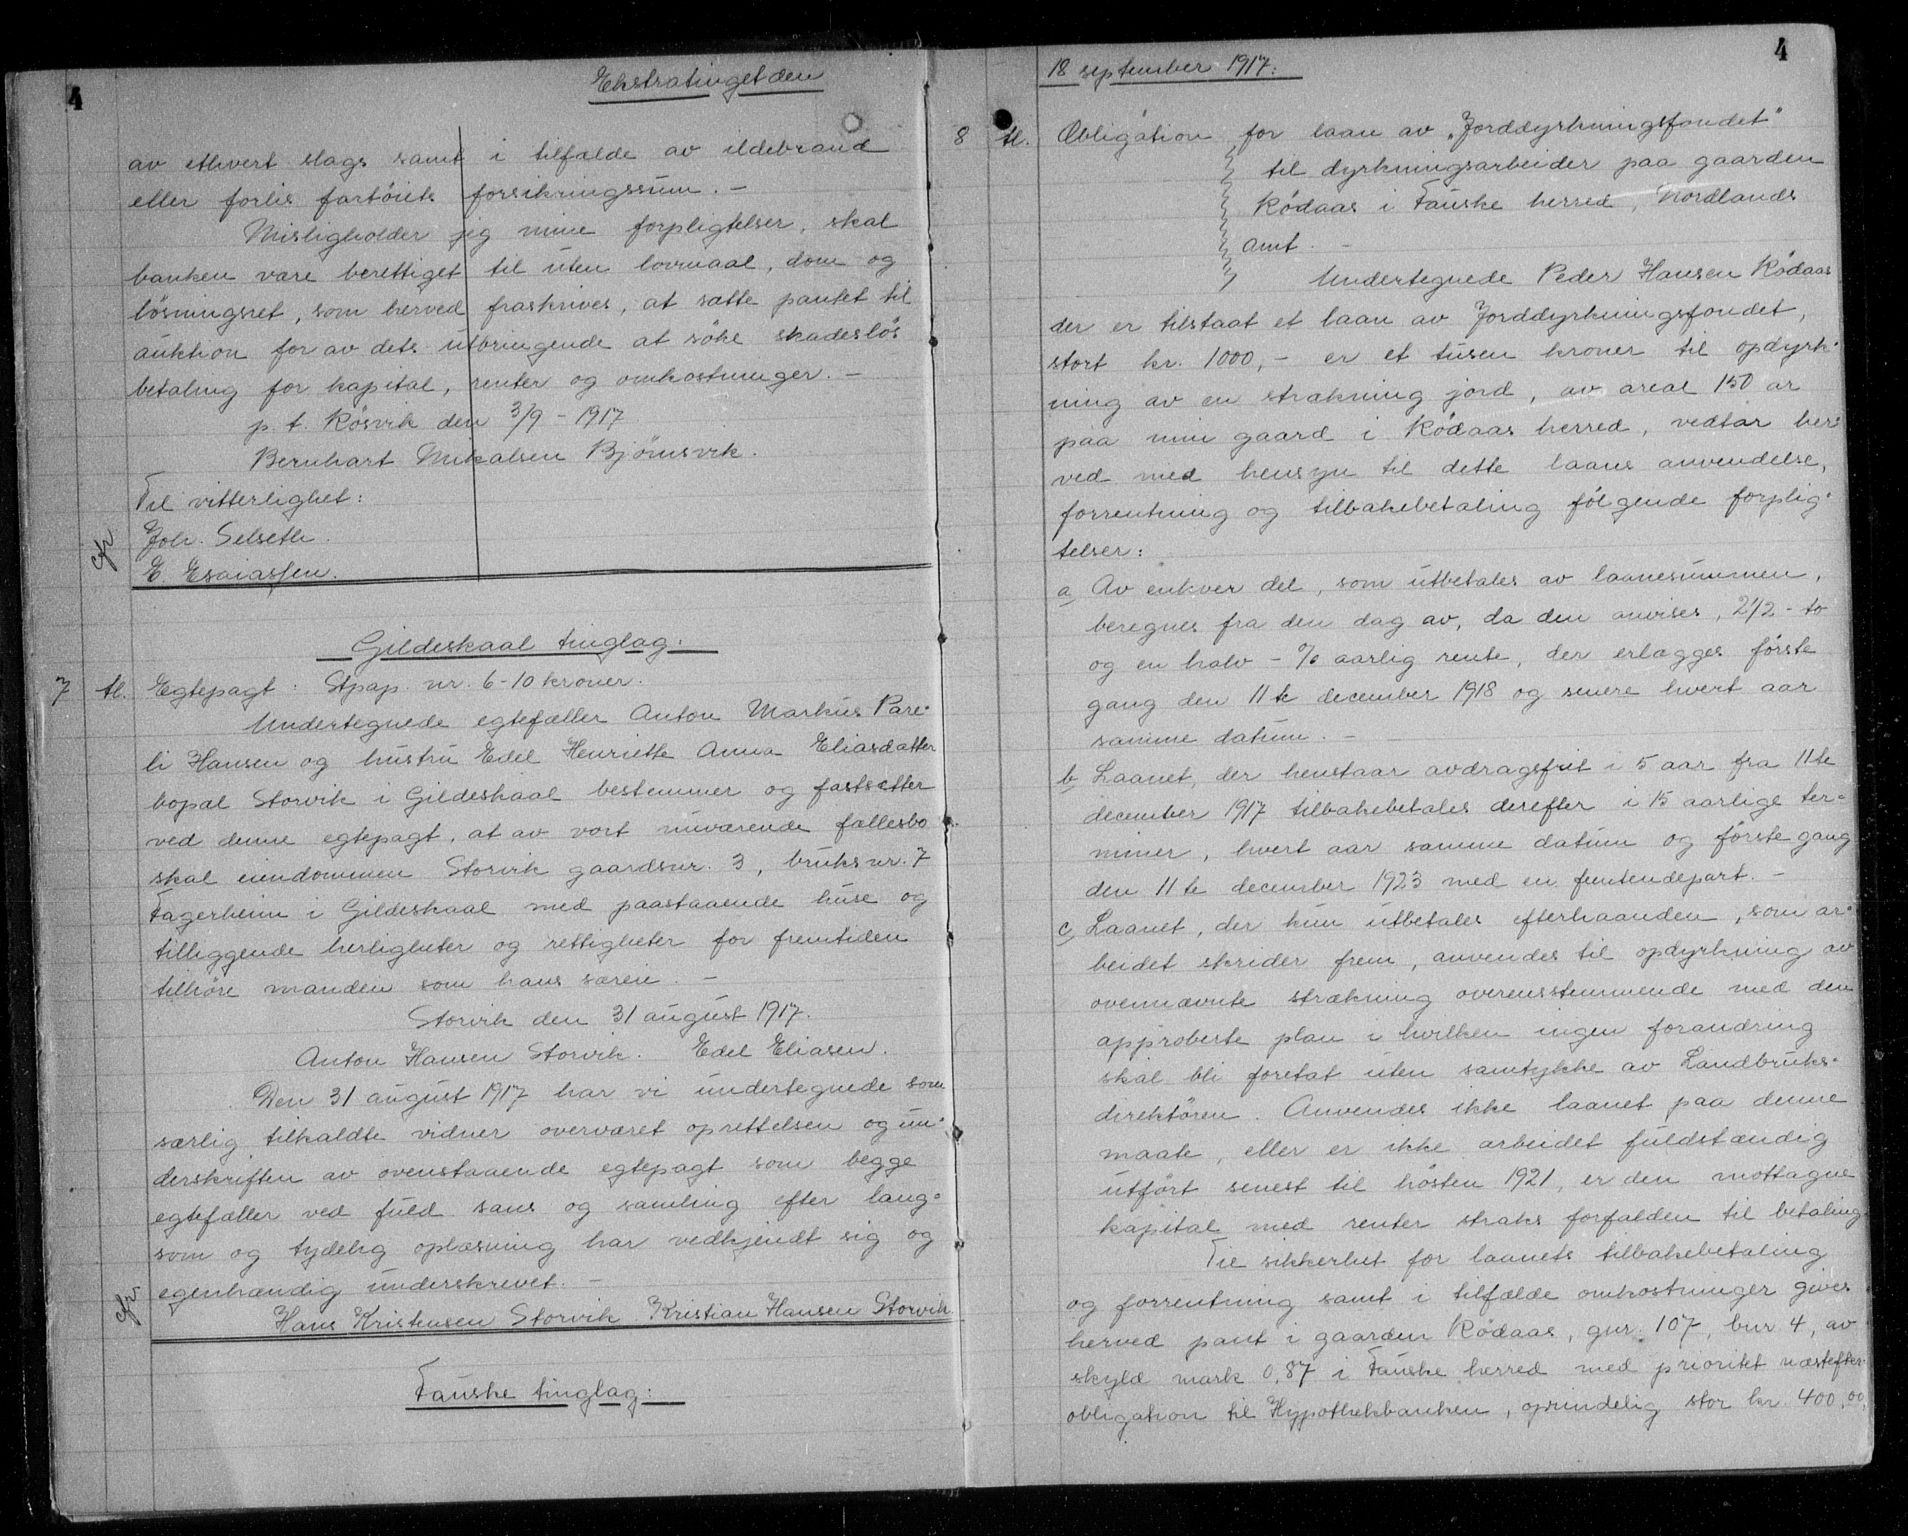 4
Ekstratinget den
av ethvert slags samt i tilfælde av ildebrand
eller forlis fartöiets forsikringssum. –
Misligholder jeg mine forpligtelser, skal
banken være berettiget til uten lovmaal, dom og
lösningsret, som herved fraskrives, at sætte pantet til
auktion for av dets utbringende at söke skadeslös
betaling for kapital, renter og omkostninger. –
p. t. Røsvik den 3/9 – 1917
Bernhart Mikalsen Bjørnsvik.
Til vitterlighet:
Joh. Selseth.
cfr.
E. Esaiassen.
Gildeskaal tinglag:
7 tl. Egtepagt: Stpap. nr. 6 – 10 kroner.
Undertegnede egtefæller Anton Markus Pare-
li Hansen og hustru Edel Henriette Anna Eliasdatter
bopæl Storvik i Gildeskaal bestemmer og fastsætter
ved denne egtepagt, at av vort nuværende fællesbo
skal eiendommen Storvik gaardsnr. 3, bruksnr. 7
Fagerheim i Gildeskaal med paastaaende huse og
tilliggende herligheter og rettigheter for fremtiden
tilhöre manden som hans særeie. –
Storvik den 31 august 1917.
Anton Hansen Storvik. Edel Eliasen.
Den 31 august 1917 har vi undertegnede som
særlig tilkaldte vidner overværet oprettelsen og un-
derskriften av ovenstaaende egtepagt som begge
egtefæller ved fuld sans og samling efter lang-
som og tydelig oplæsning har vedkjendt sig og
egenhændig underskrevet. –
cfr.
Hans Kristensen Storvik Kristian Hansen Storvik
Fauske tinglag:
4
18 september 1917:
8 tl. Obligation for laan av „Jorddyrkningsfondet"
til dyrkningsarbeider paa gaarden
Rødaas i Fauske herred, Nordlands
amt. –
Undertegnede Peder Hansen Rødaas
der er tilstaat et laan av Jorddyrkningsfondet,
stort kr. 1000, – er et tusen kroner til opdyrk-
ning av en strækning jord, av areal 150 ar
paa min gaard i Rødaas herred, vedtar her-
ved med hensyn til dette laans anvendelse,
forrentning og tilbakebetaling følgende forplig-
telser:
a, Av enhver del, som utbetales av laanesummen,
beregnes fra den dag av, da den anvises, 2 1/2 – to
og en halv – % aarlig rente, der erlægges første
gang den 11te december 1918 og senere hvert aar
samme datum. –
b, Laanet, der henstaar avdragsfrit i 5 aar fra 11te
december 1917 tilbakebetales derefter i 15 aarlige ter-
miner, hvert aar samme datum og første gang
den 11te december 1923 med en femtendepart. –
c, Laanet, der kun utbetales efterhaanden, som ar-
beidet skrider frem, anvendes til opdyrkning av
ovennævnte strækning overensstemmende med den
approberte plan i hvilken ingen forandring
skal bli foretat uten samtykke av Landbruks-
direktören. Anvendes ikke laanet paa denne
maate, eller er ikke arbeidet fuldstændig
utført senest til hösten 1921, er den mottagne
kapital med renter straks forfalden til betaling.
Til sikkerhet for laanets tilbakebetaling
og forrentning samt i tilfælde omkostninger gives
herved pant i gaarden Rødaas, gnr. 107, bnr 4, av
skyld mark 0,87 i Fauske herred med prioritet næstefter
obligation til Hypothekbanken, oprindelig stor kr. 400,00,